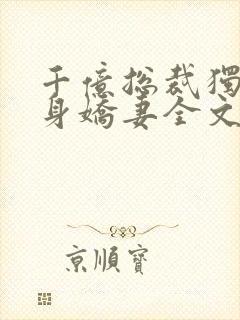 千億總裁獨
身嬌妻全文
京順寶